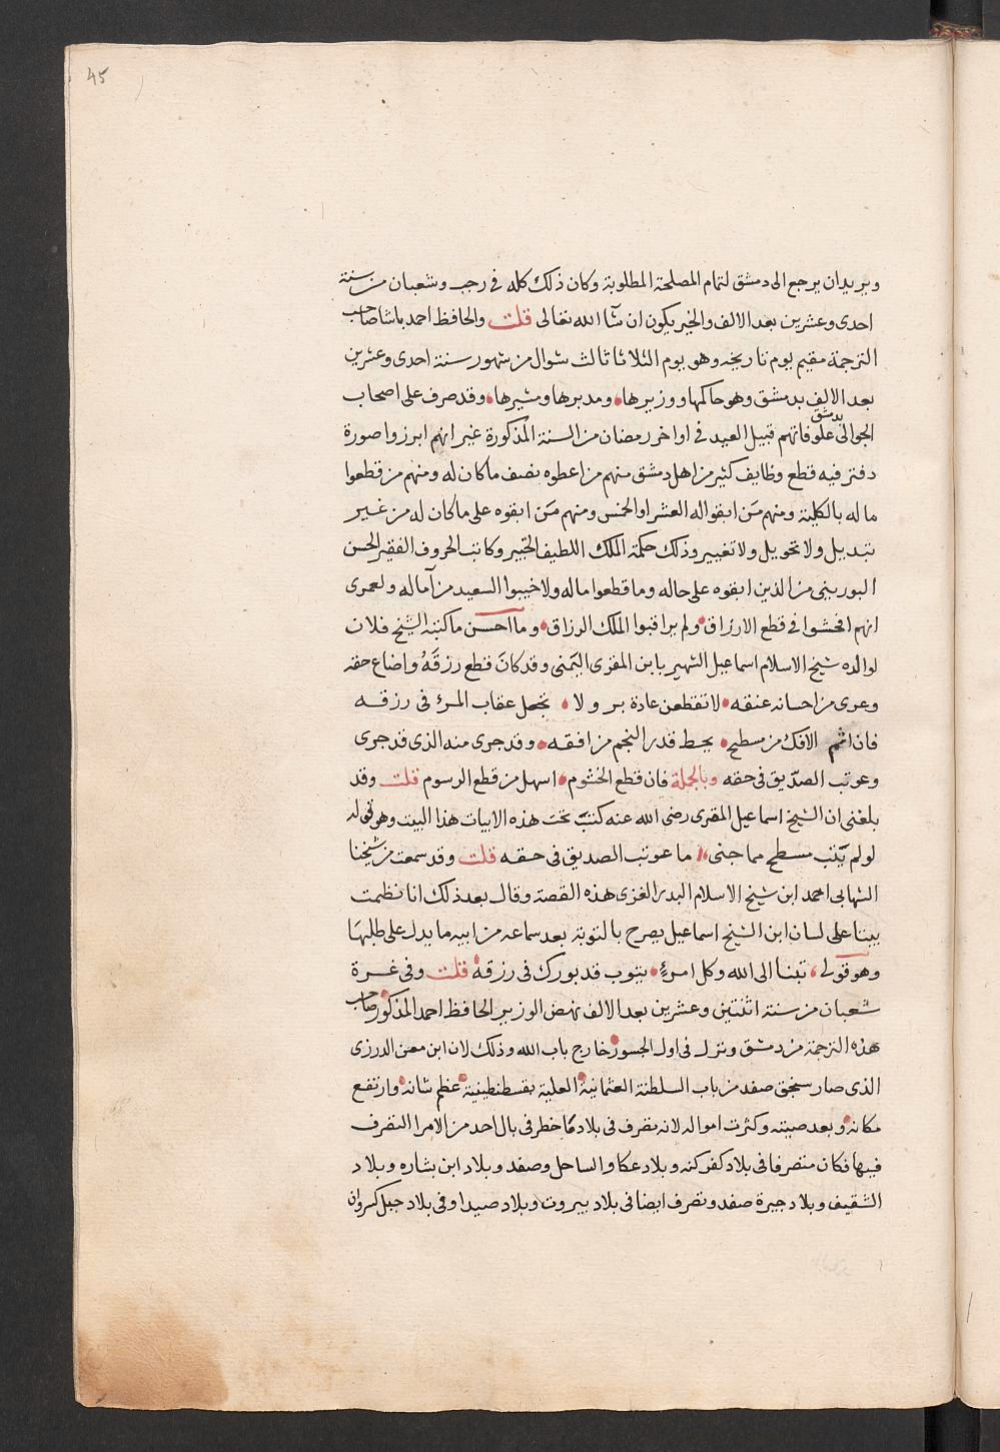 45
ويريدان يرجع الى دمشق لتمام المصلحة المطلوبة وكان ذلك كله فى رجب وشعبان من سنة
احدى وعشرين بعد الالف والخير يكون ان شآ الله تعالى قلت والحافظ احمد باشا صاحب
الترجمة مقيم يوم تاريخه وهو يوم الثلاثا ثالث شوال من شهور سنة احدى وعشرين
بعد الالف بدمشق وهو حاكمها ووزيرها ومدبرها ومشيرها وقد صرف على اصحاب
الجوالى بدمشق علوفاتهم قبيل العيد فى اواخر رمضان من السنة المذكورة غير انهم ابرزوا صورة
دفتر فيه قطع وظايف كثير من اهل دمشق منهم من اعطوه نصف ما كان له ومنهم من قطعوا
ما له بالكلية ومنهم من ابقوا له العشر او الخمس ومنهم من ابقوه على ما كان له من غير
تبديل ولا تحويل ولا تغيير وذلك حكمة الملك اللطيف الخبير وكاتب الحروف الفقير الحسن
البورينى من الذين ابقوه على حاله وما قطعوا ماله ولا خيبوا السعيد من آماله ولعمرى
انهم افحشوا فى قطع الارزاق ولم يراقبوا الملك الرزاق وما احسن ما كتبه الشيخ فلان
لوالده شيخ الاسلام اسماعيل الشهير بابن المقرى اليمنى وقد كان قطع رزقه واضاع حقه
وعرى من احسانه عنقه لا تقطعن عادة بر ولا تجعل عقاب المرء فى رزقه
فان اثم الافك من مسطح يحط قدر النجم من افقه وقد جرى منه الذى قد جرى
وعوتب الصديق فى حقه وبالجملة فان قطع الخشوم اسهل من قطع الرسوم قلت وقد
بلغنى ان الشيخ اسماعيل المقرى رضى الله عنه كتب تحت هذه الابيات هذا البيت وهو قوله
لو لم يتب مسطح مما جنى ما عوتب الصديق فى حقه قلت وقد سمعت من شيخنا
الشهابى احمد ابن شيخ الاسلام البدر الغزى هذه القصة وقال بعد ذلك انا نظمت
بيتا على لسان ابن الشيخ اسماعيل يصرح بالتوبة بعد سماعه من ابيه ما يدل على طلبها
وهو قولى تبنا الى الله وكل امرئ يتوب قد بورك فى رزقه قلت وفى غرة
شعبان من سنة اثنتين وعشرين بعد الالف نهض الوزير الحافظ احمد المذكور صاحب
هذه الترجمة من دمشق ونزل فى اول الجسور خارج باب الله وذلك لان ابن معن الدرزى
الذى صار سنجق صفد من باب السلطنة العثمانية العلية بقسطنطينية عظم شانه وارتفع
مكانه وبعد صيته وكثرت امواله لانه تصرف فى بلاد ما خطر فى بال احد من الامرا التصرف
فيها فكان متصرفا فى بلاد كفركنه وبلاد عكا والساحل وصفد وبلاد ابن بشاره وبلاد
الشقيف وبلاد جيرة صفد وتصرف ايضا فى بلاد بيروت وبلاد صيدا وفى بلاد جبل كسروان